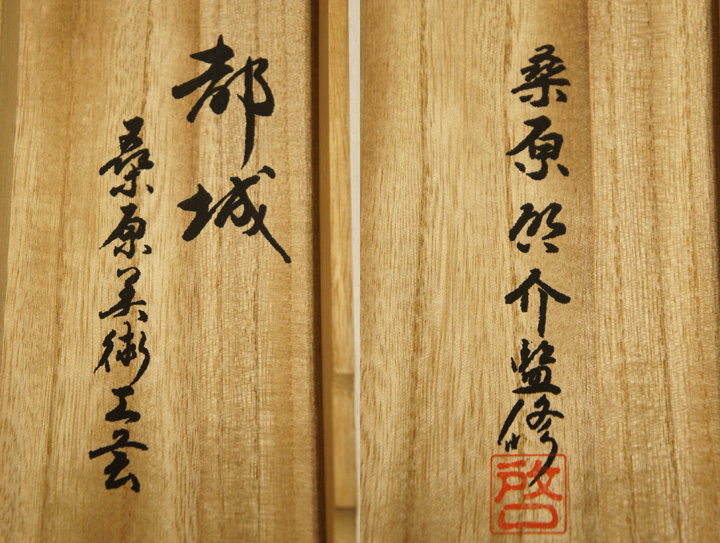 都城
桑原美術工芸
桑原啓介監修
啓